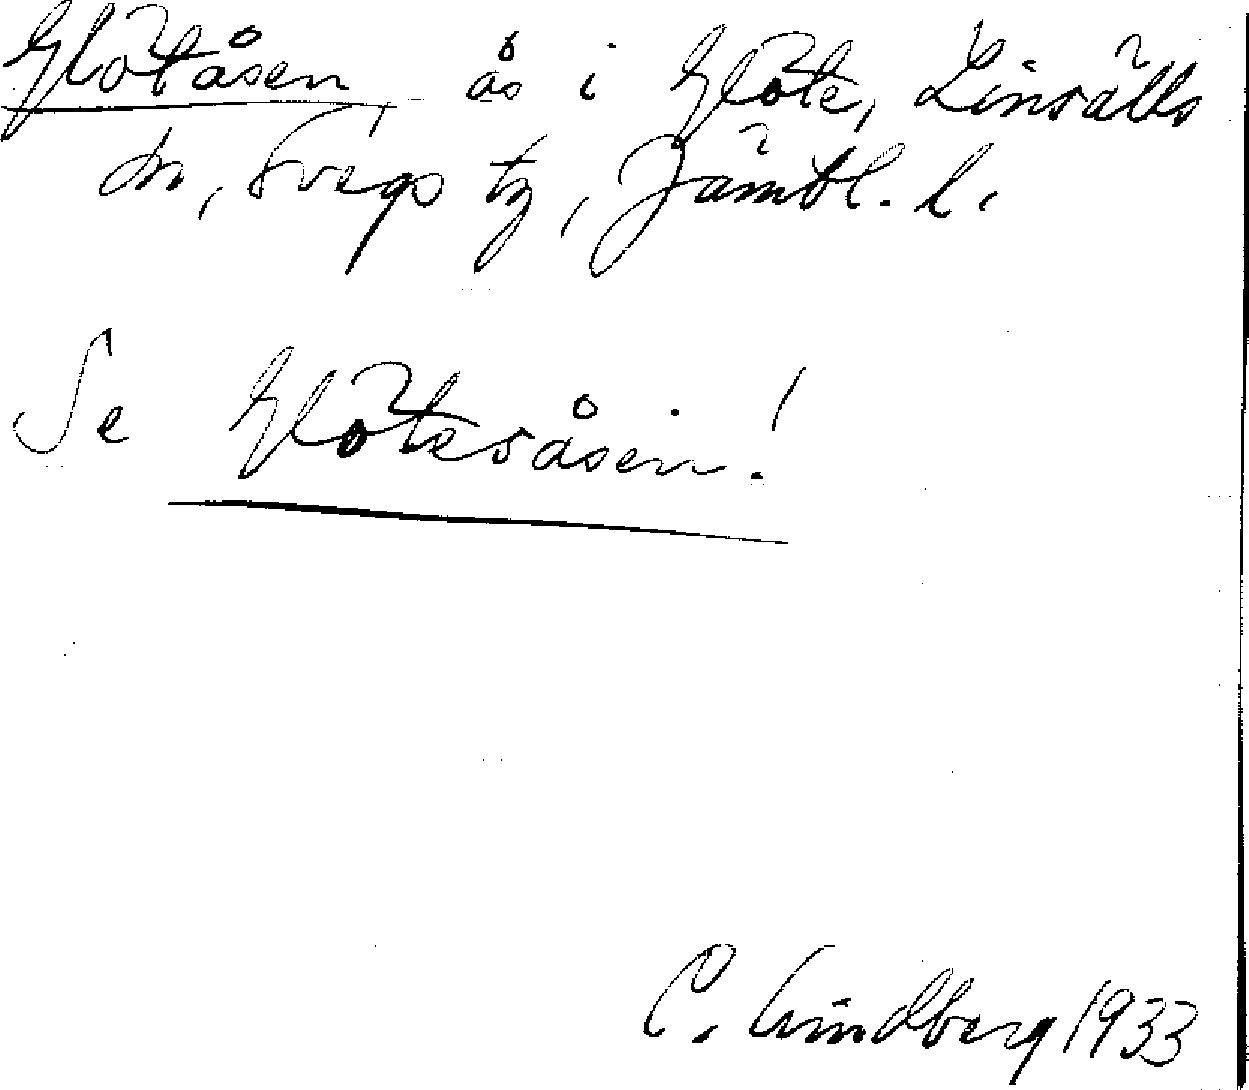 Glötåsen, ås i Glöte, Linsälls
sn, Svegs tg, Jämtl. l.
Se Glötesåsen!
C. Lindberg 1933